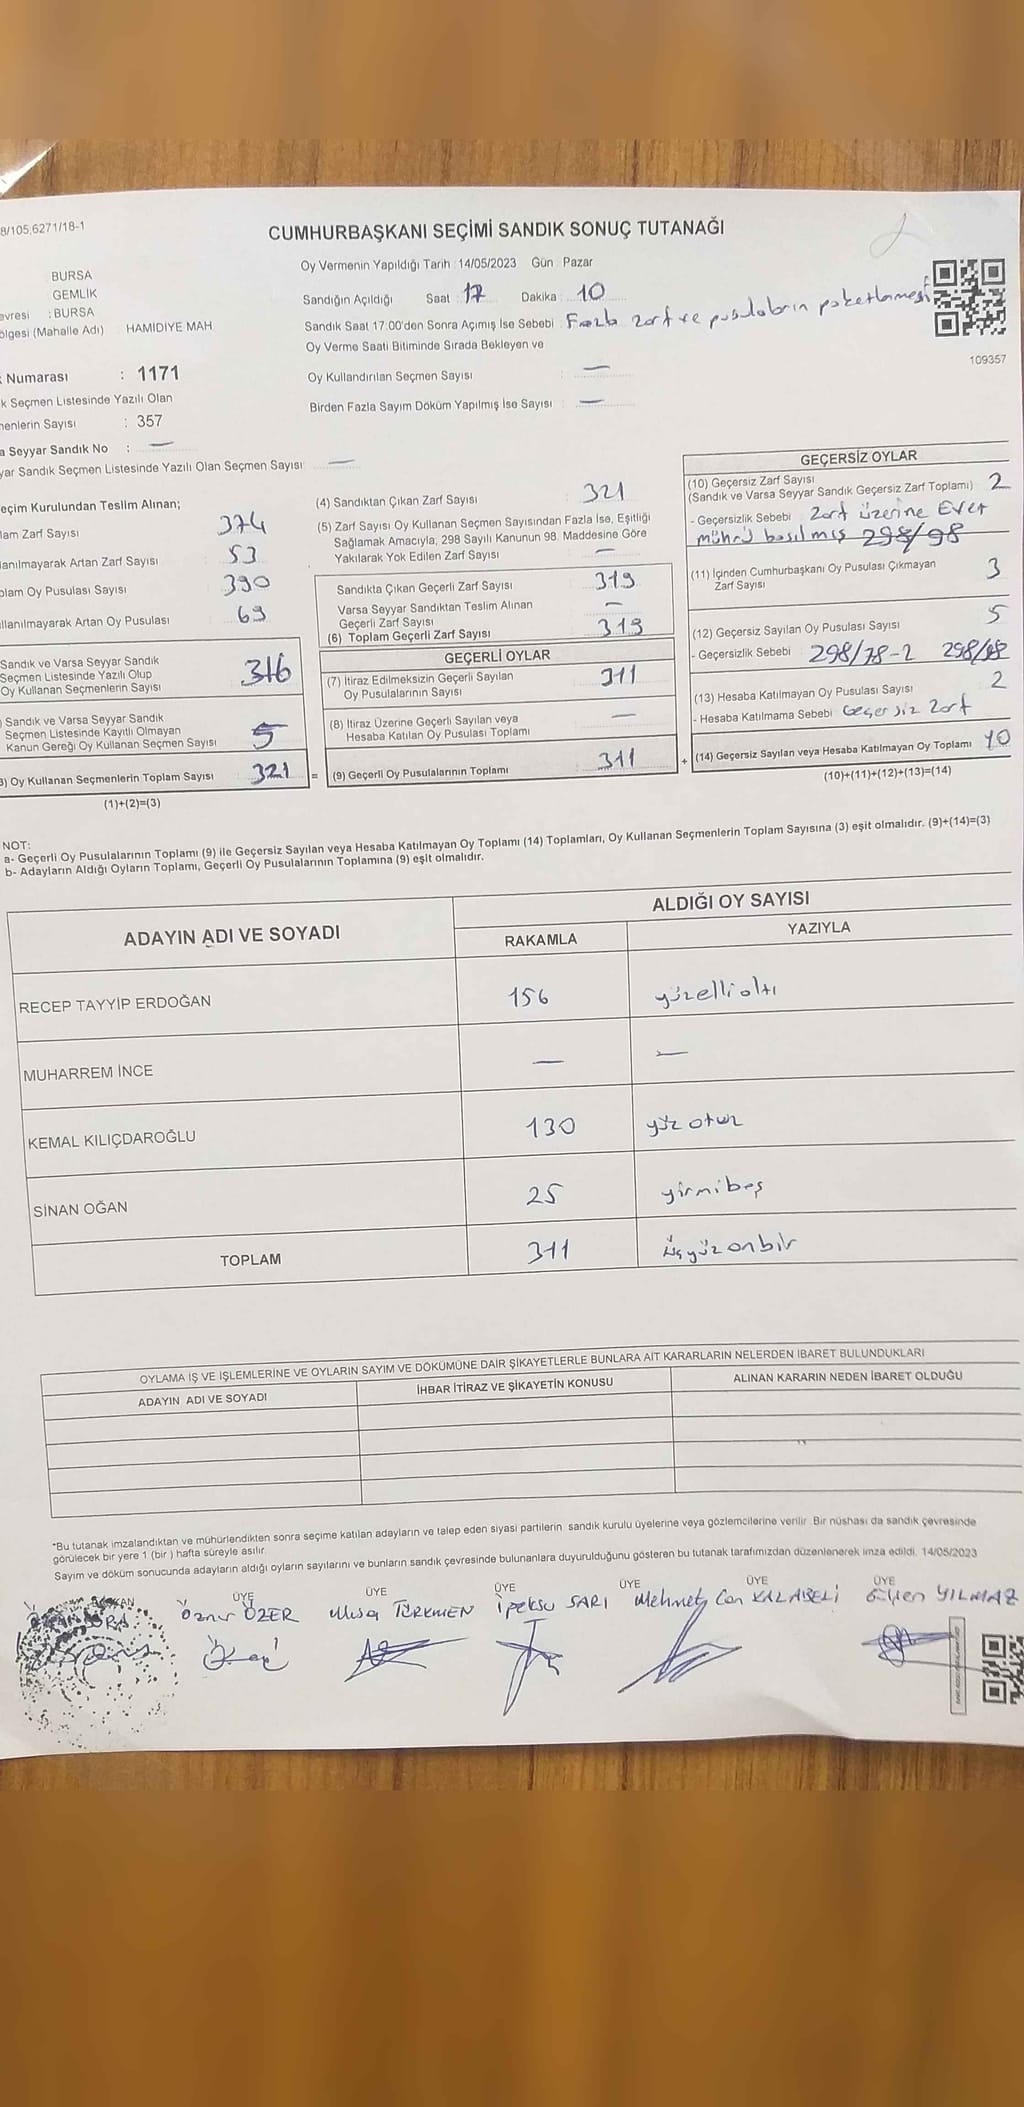 8/105,6271/18-1
CUMHURBAŞKANI SEÇİMİ SANDIK SONUÇ TUTANAĞI
BURSA
GEMLİK
evresi : BURSA
ölgesi (Mahalle Adı) HAMIDIYE MAH
Numarası : 1171
k Seçmen Listesinde Yazılı Olan
nenlerin Sayısı : 357
a Seyyar Sandık No : —
yar Sandık Seçmen Listesinde Yazılı Olan Seçmen Sayısı —
Oy Vermenin Yapıldığı Tarih : 14/05/2023 Gün : Pazar
Sandığın Açıldığı Saat : 17 Dakika : 10
Sandık Saat 17:00'den Sonra Açımış İse Sebebi : Fazla zarf ve pusulaların paketlenmesi
Oy Verme Saati Bitiminde Sırada Bekleyen ve
Oy Kullandırılan Seçmen Sayısı : —
Birden Fazla Sayım Döküm Yapılmış İse Sayısı : —
109357
eçim Kurulundan Teslim Alınan;
lam Zarf Sayısı 374
lanılmayarak Artan Zarf Sayısı 53
plam Oy Pusulası Sayısı 390
ullanılmayarak Artan Oy Pusulası 69
Sandık ve Varsa Seyyar Sandık
Seçmen Listesinde Yazılı Olup
Oy Kullanan Seçmenlerin Sayısı 316
) Sandık ve Varsa Seyyar Sandık
Seçmen Listesinde Kayıtlı Olmayan
Kanun Gereği Oy Kullanan Seçmen Sayısı 5
3) Oy Kullanan Seçmenlerin Toplam Sayısı 321 =
(1)+(2)=(3)
(4) Sandıktan Çıkan Zarf Sayısı 321
(5) Zarf Sayısı Oy Kullanan Seçmen Sayısından Fazla İse, Eşitliği
Sağlamak Amacıyla, 298 Sayılı Kanunun 98. Maddesine Göre
Yakılarak Yok Edilen Zarf Sayısı —
Sandıkta Çıkan Geçerli Zarf Sayısı 319
Varsa Seyyar Sandıktan Teslim Alınan
Geçerli Zarf Sayısı —
(6) Toplam Geçerli Zarf Sayısı 319
GEÇERLİ OYLAR
(7) İtiraz Edilmeksizin Geçerli Sayılan
Oy Pusulalarının Sayısı 311
(8) İtiraz Üzerine Geçerli Sayılan veya
Hesaba Katılan Oy Pusulası Toplamı —
(9) Geçerli Oy Pusulalarının Toplamı 311 +
GEÇERSİZ OYLAR
(10) Geçersiz Zarf Sayısı
(Sandık ve Varsa Seyyar Sandık Geçersiz Zarf Toplamı) 2
- Geçersizlik Sebebi : Zarf üzerine Evet
mührü basılmış 298/98
(11) İçinden Cumhurbaşkanı Oy Pusulası Çıkmayan
Zarf Sayısı 3
(12) Geçersiz Sayılan Oy Pusulası Sayısı 5
- Geçersizlik Sebebi : 298/78-2 298/98
(13) Hesaba Katılmayan Oy Pusulası Sayısı 2
- Hesaba Katılmama Sebebi Geçersiz Zarf
(14) Geçersiz Sayılan veya Hesaba Katılmayan Oy Toplamı 10
(10)+(11)+(12)+(13)=(14)
NOT:
a- Geçerli Oy Pusulalarının Toplamı (9) ile Geçersiz Sayılan veya Hesaba Katılmayan Oy Toplamı (14) Toplamları, Oy Kullanan Seçmenlerin Toplam Sayısına (3) eşit olmalıdır. (9)+(14)=(3)
b- Adayların Aldığı Oyların Toplamı, Geçerli Oy Pusulalarının Toplamına (9) eşit olmalıdır.
ADAYIN ADI VE SOYADI
ALDIĞI OY SAYISI
RAKAMLA YAZIYLA
RECEP TAYYİP ERDOĞAN 156 yüzellialtı
MUHARREM İNCE — —
KEMAL KILIÇDAROĞLU 130 yüz otuz
SİNAN OĞAN 25 yirmibeş
TOPLAM 311 üçyüzonbir
OYLAMA İŞ VE İŞLEMLERİNE VE OYLARIN SAYIM VE DÖKÜMÜNE DAİR ŞİKAYETLERLE BUNLARA AİT KARARLARIN NELERDEN İBARET BULUNDUKLARI
ADAYIN ADI VE SOYADI İHBAR İTİRAZ VE ŞİKAYETİN KONUSU ALINAN KARARIN NEDEN İBARET OLDUĞU
*Bu tutanak imzalandıktan ve mühürlendikten sonra seçime katılan adayların ve talep eden siyasi partilerin sandık kurulu üyelerine veya gözlemcilerine verilir. Bir nüshası da sandık çevresinde
görülecek bir yere 1 (bir ) hafta süreyle asılır.
Sayım ve döküm sonucunda adayların aldığı oyların sayılarını ve bunların sandık çevresinde bulunanlara duyurulduğunu gösteren bu tutanak tarafımızdan düzenlenerek imza edildi. 14/05/2023
ÜYE ÜYE ÜYE ÜYE ÜYE ÜYE
Öznur ÖZER Musa TÜRKMEN İpeksu SARI Mehmet Can KALABELİ YILMAZ